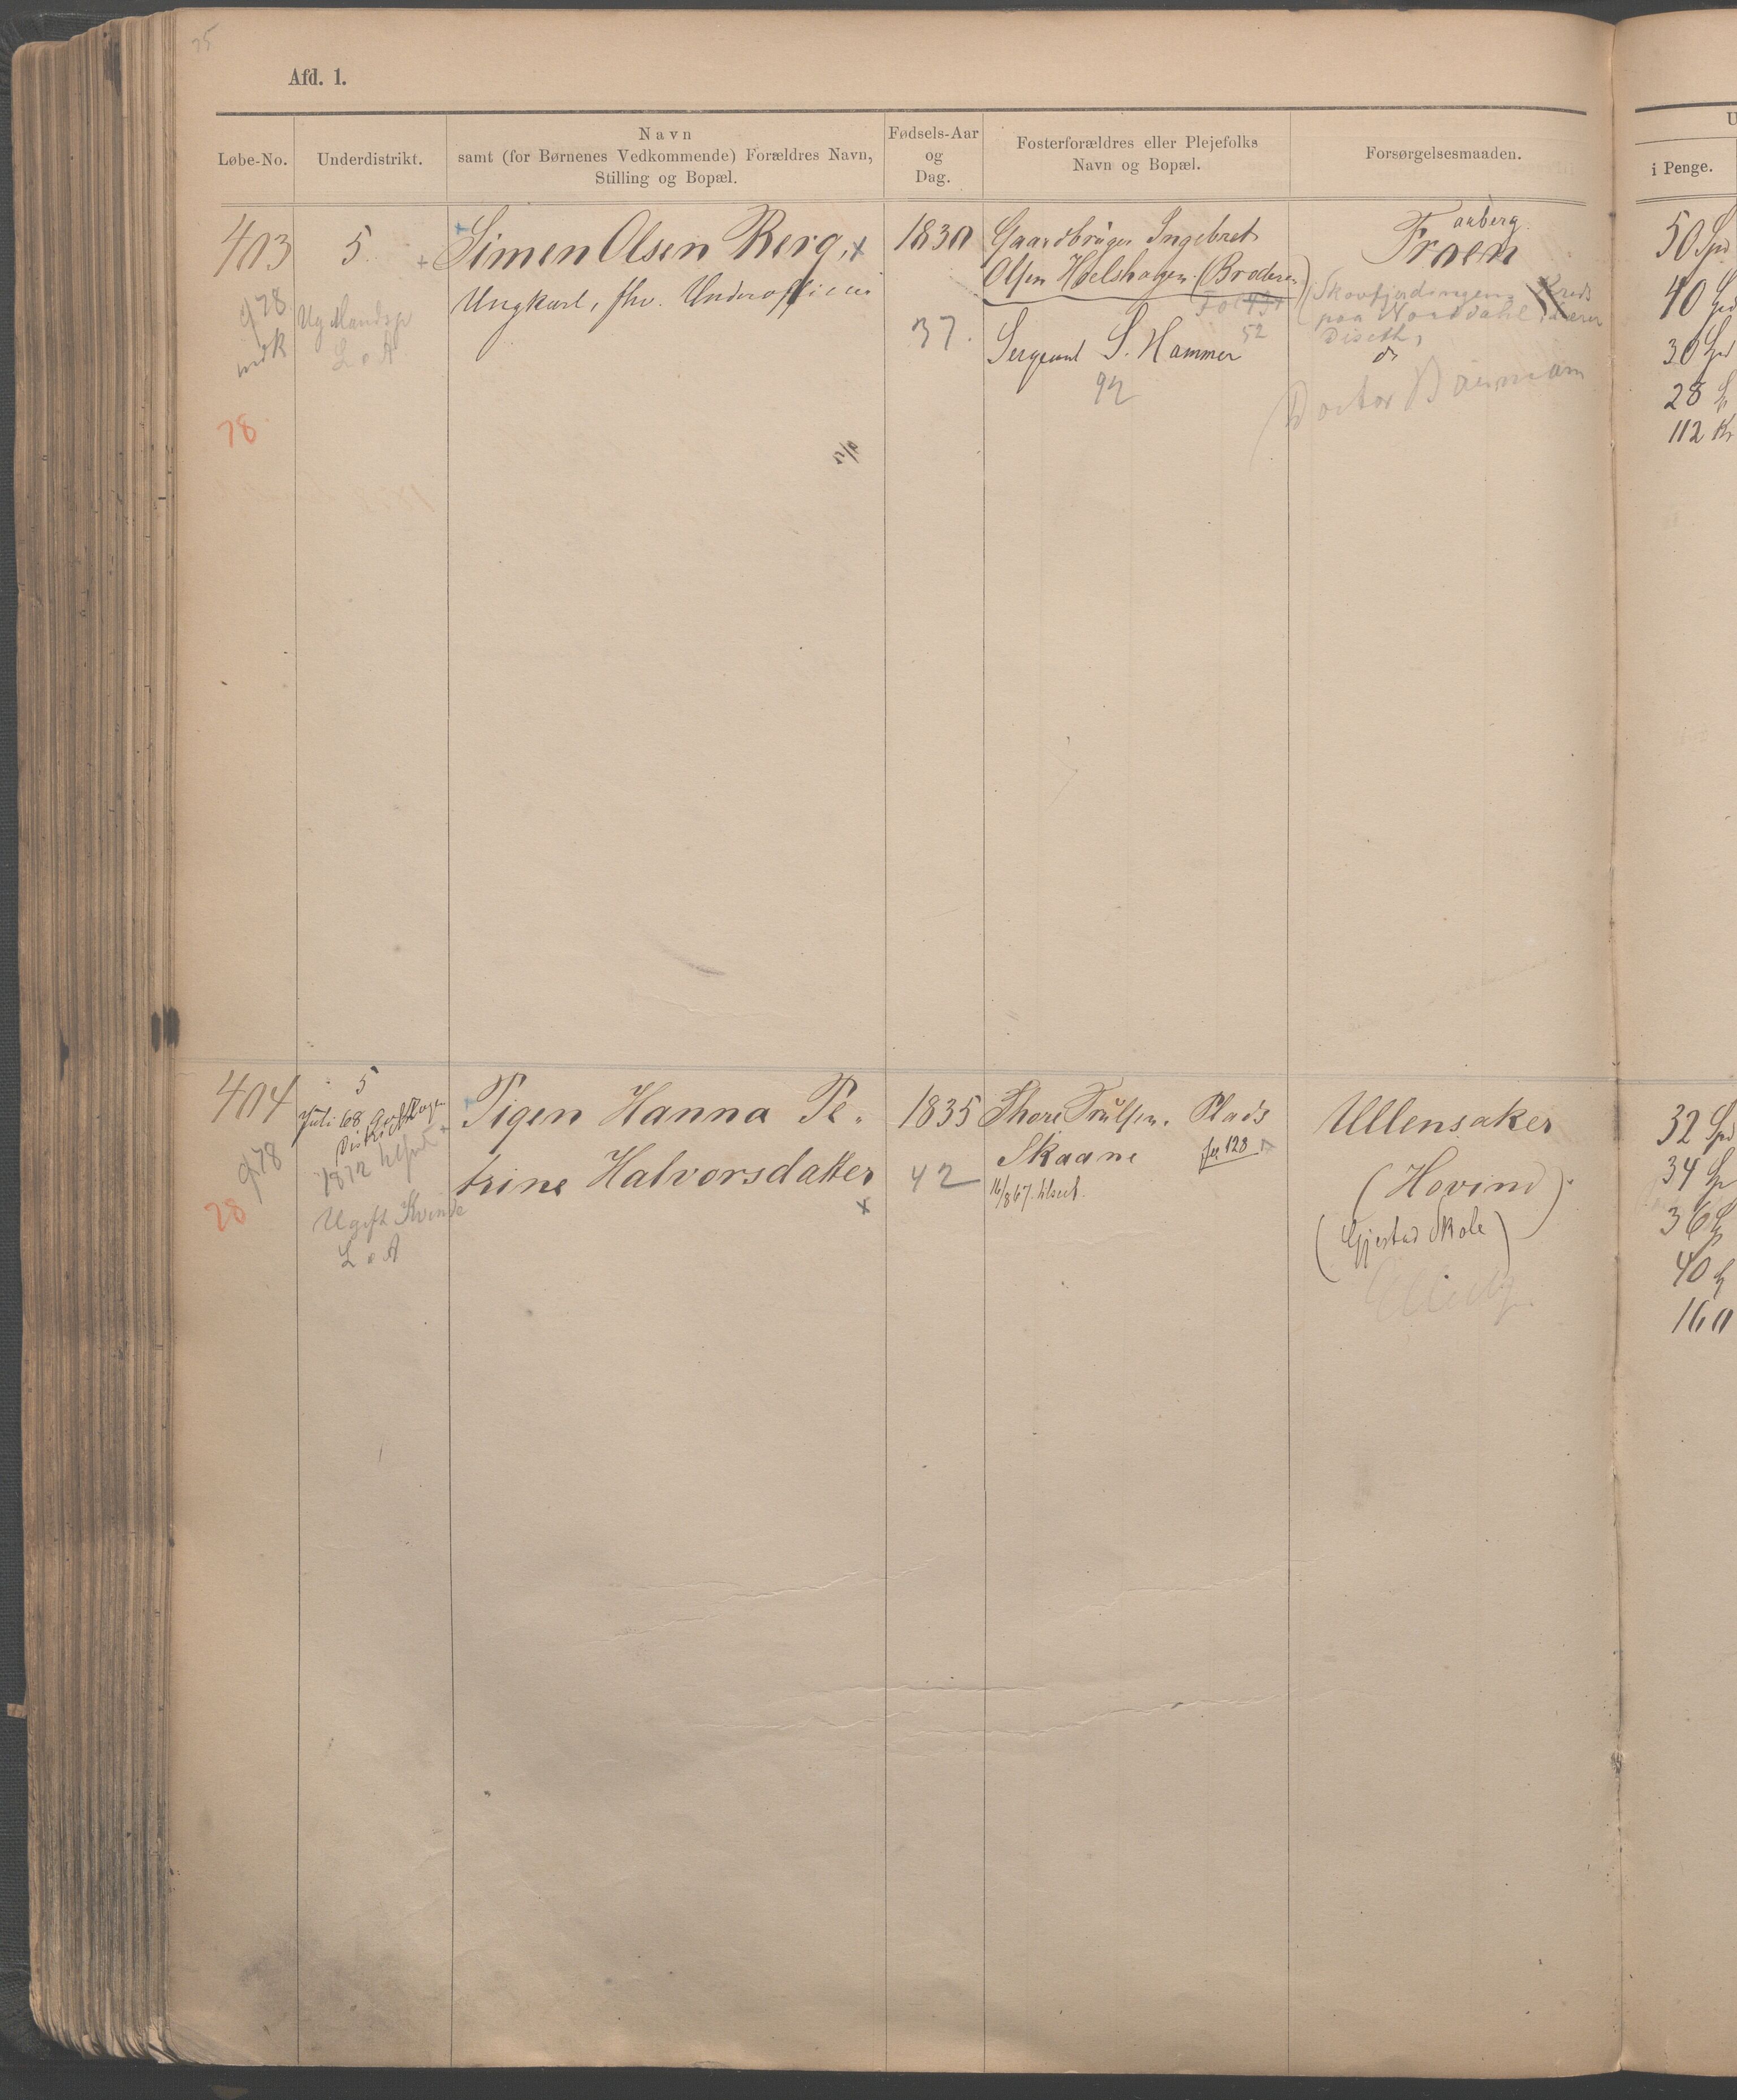 75
Afd. 1.
Løbe-No.
Underdistrikt.
Navn
samt (for Børnenes Vedkommende) Forældres Navn,
Stilling og Bopæl.
Fødsels-Aar
og
Dag.
Fosterforældres eller Plejefolks
Navn og Bopæl.
Forsørgelsesmaaden.
i Penge.
403
978
78
5.
Ug Mandsp
L o A
Simen Olsen Berg, x
Ungkarl, fhv. Underofficier
1830
37.
Gaardbruger Ingebret
Olsen Hoelshagen (Broderen)
52
Sergeant S. Hammer
92
aaberg
Froen
(Skovfjerdingen Kreds
paa Norddahl
Diseth,
do
Doctor
50 Spd
40 Spd
30 Spd
28 Sp
112 Kr
404
978
28
5
Juli 68
District
1872
Ugift Kvinde
L o A
Pigen Hanna Pe-
trine Halvorsdatter
x
1835
42
Thore Trulsen. Plads
Skaane
128
16/8 67. tilset.
Ullensaker
(Hovind)
(Gjestad Skole)
32 Spd
34 Sp
36 Sp
40 Sp
160